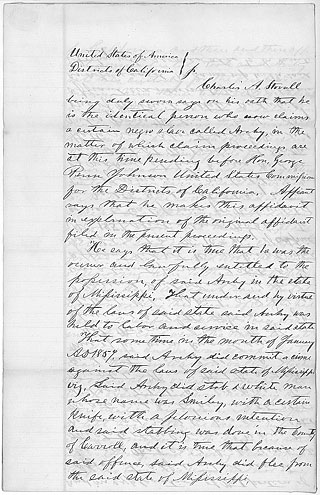 United States of America
Districts of California
Charles A Stovall
being duly sworn says on his oath that he
is the identical person who now claims
a certain negro slave called Archy, in the
matter of which claim proceedings are
at this time pending before Hon. George
Penn Johnson United States Commissioner
for the Districts of California, Affiant
says that he makes this affidavit
in explanation of the original affidavit
filed in the present proceedings.
He says that it is true that he was the
owner and lawfully entitled to the
possession, of said Archy in the state
of Mississippi, That under and by virtue
of the laws of said state said Archy was
held to labor and service in said state
That some time in the month of January
AD 1857, said Archy did commit a crime
against the laws of said state of Mississippi
viz, Said Archy did stab a white man
whose name was Smiley, with a certain
knife, with a felonious intention
and said stabbing was done in the County
of Carroll, and it is true that because of
said offence, said Archy did flee from
the said state of Mississippi